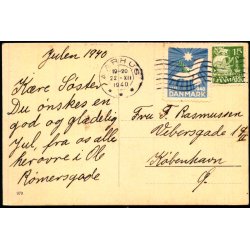 Julen 1940
Kære Søster
Du ønskes en
god og glædelig
Jul, fra os alle
herovre i
Rømersgade
AARHUS
19-20
22.XII
1940
DANMARK
15
Fru F. Rasmussen
Vebersgade
København
Ø.